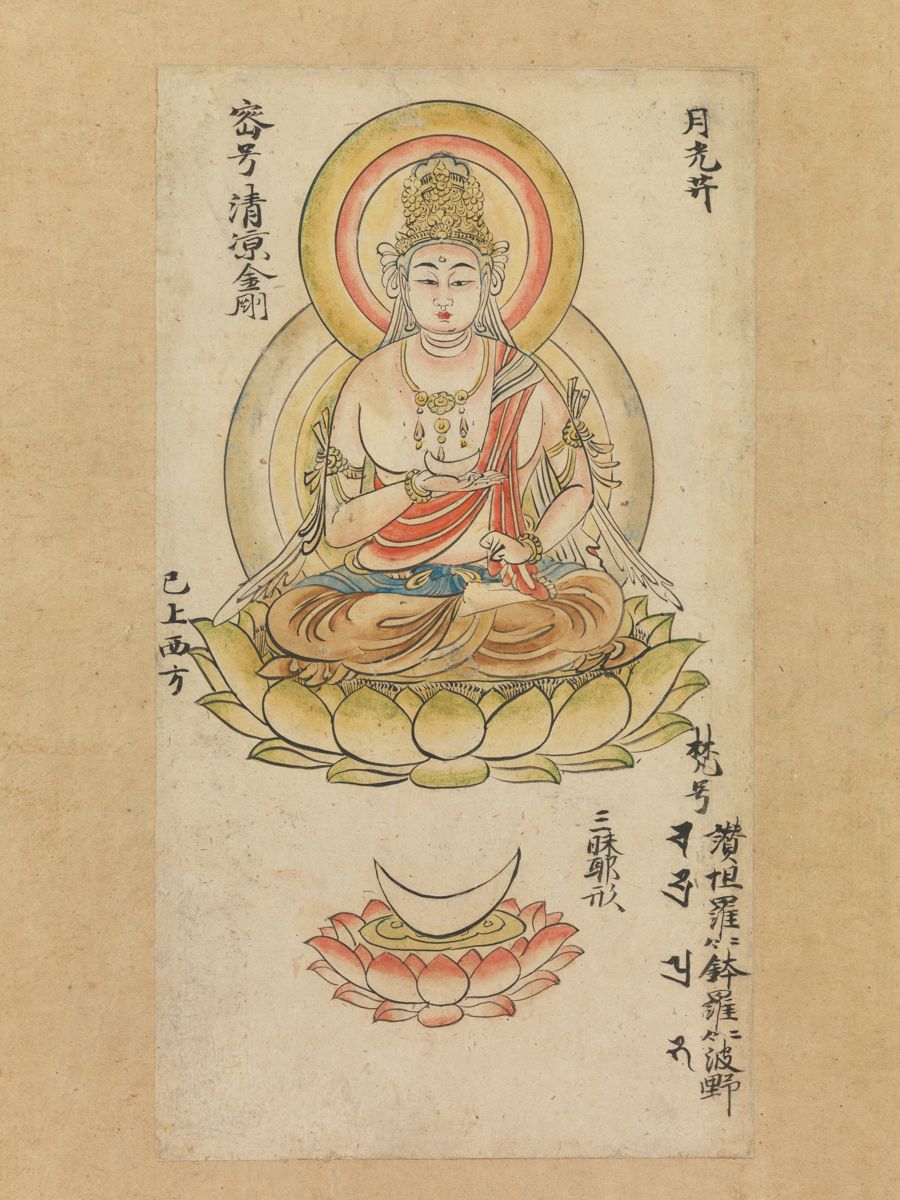 月光𦬇
梵号
讚怛羅二合鉢羅二合波野
三昧耶形
密号清凉金剛
已上西方